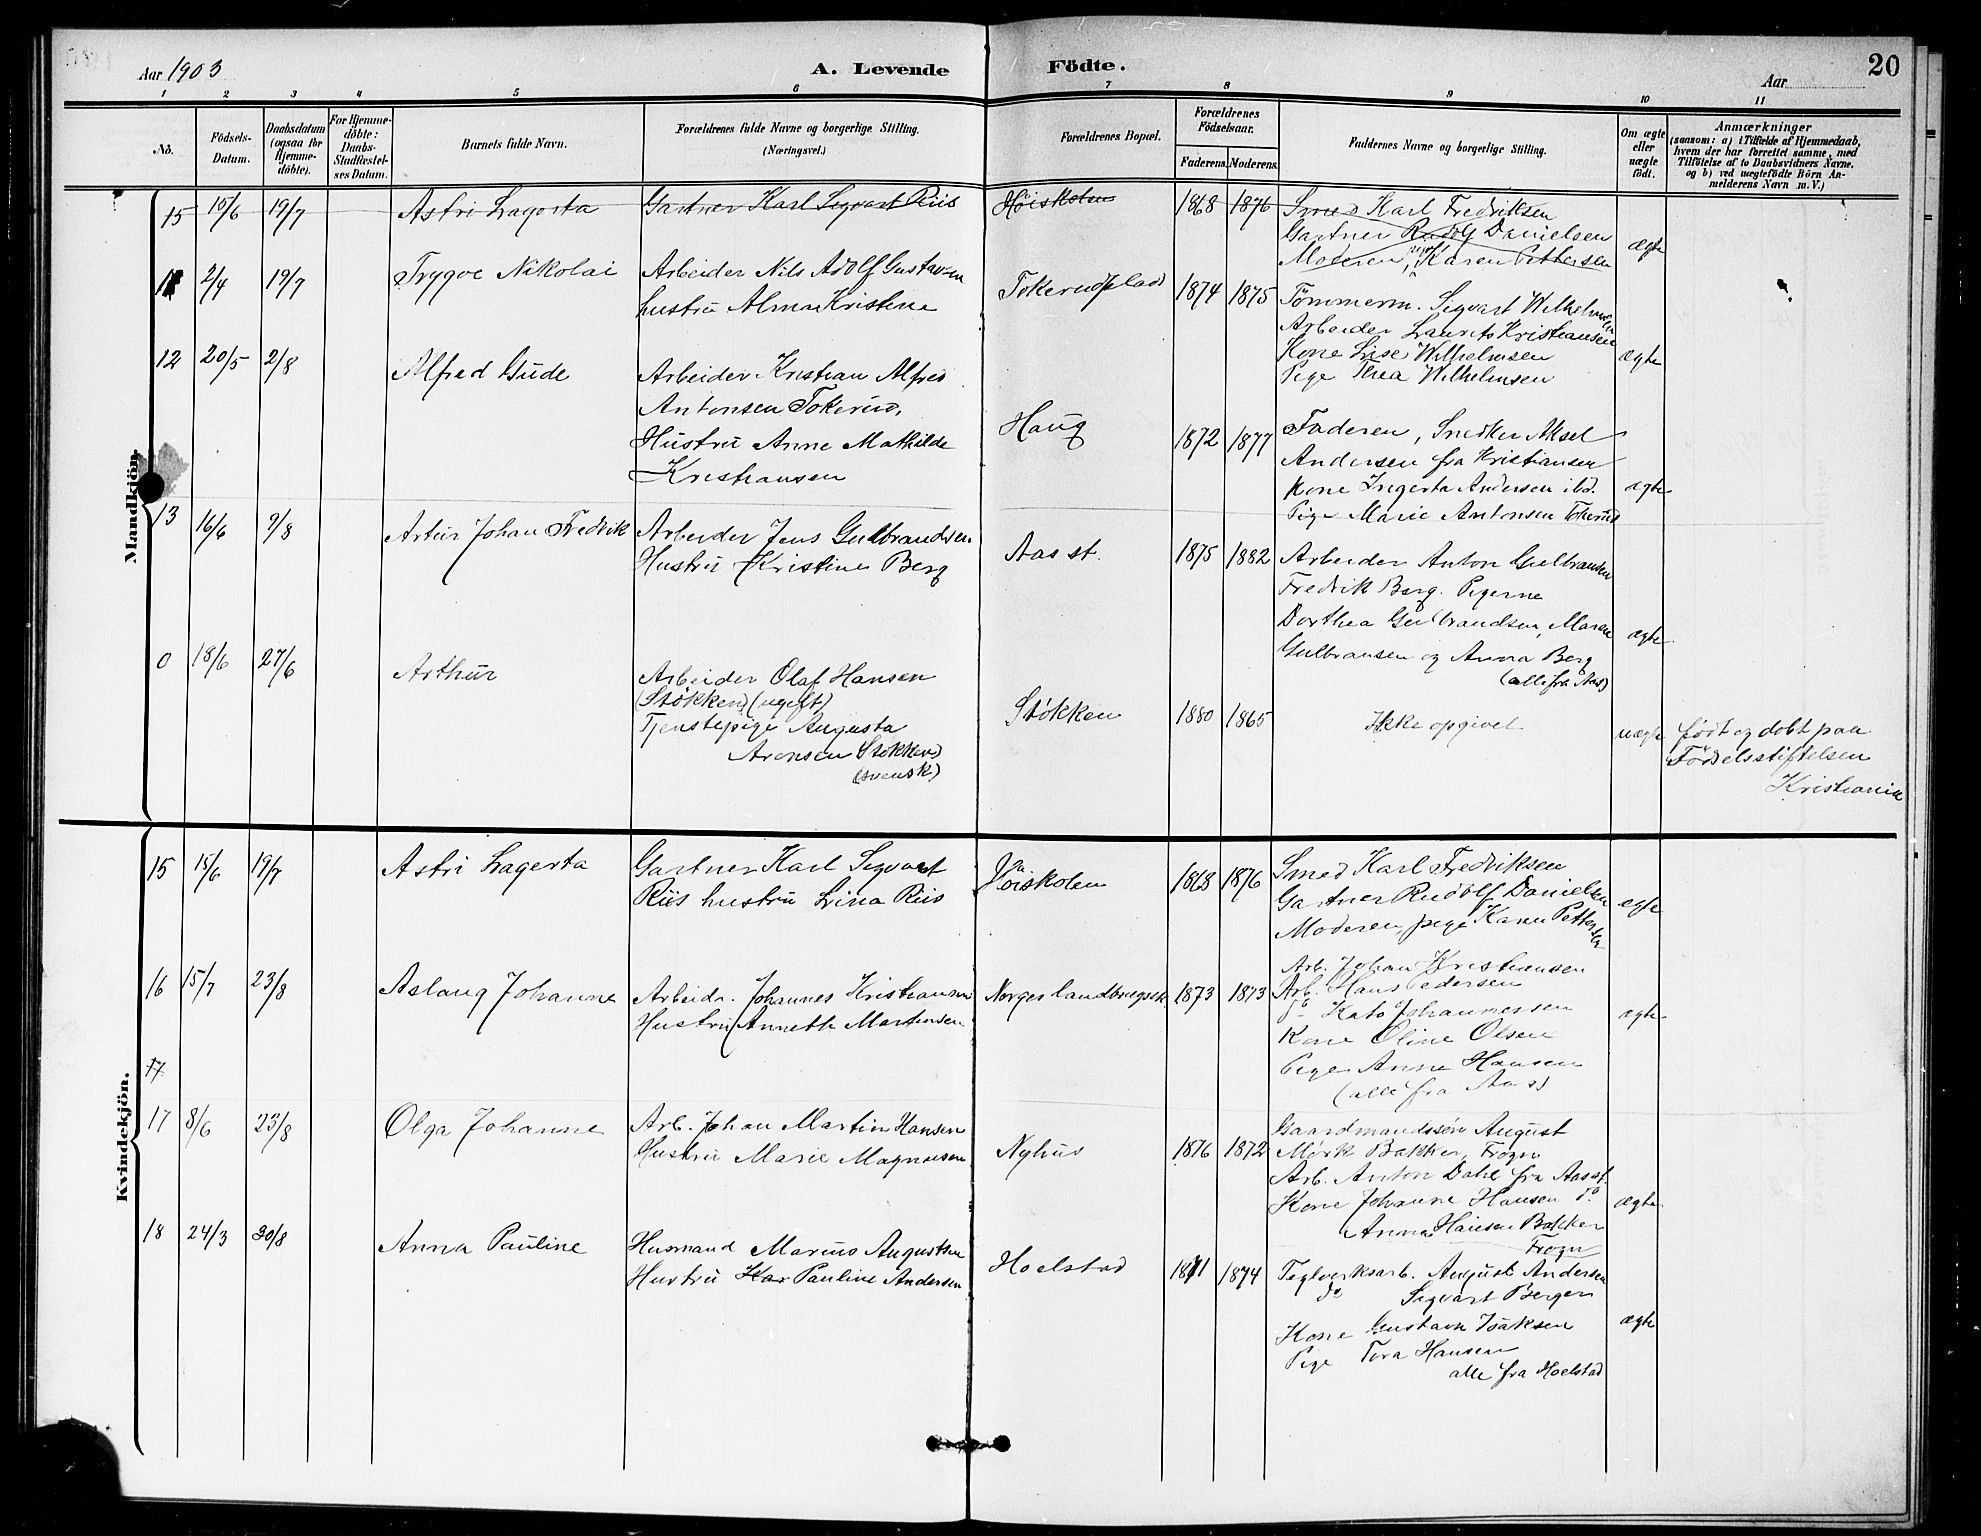 Aar 1903
A. Levende Födte.
Aar
20
1 2 3 4 5 6 7 8 9 10 11
No.
Födsels-Datum.
Daabsdatum (ogsaa for Hjemme-döbte).
For Hjemme-döbte: Daabs-Stadfæstel-ses Datum.
Barnets fulde Navn.
Forældrenes fulde Navne og borgerlige Stilling.
(Næringsvei.)
Forældrenes Bopæl.
Forældrenes Födselsaar.
Faderens. Moderens.
Faddernes Navne og borgerlige Stilling.
Om ægte eller uægte födt.
Anmærkninger
(saasom: a) i Tilfælde af Hjemmedaab, hvem der har forrettet samme, med Tilföielse af to Daabsvidners Navne, og b) ved uægtefödte Börn An-melderens Navn m. V.)
Mandkjön.
15 15/6 19/7 Astri Lagerta Gartner Karl Sigvart Riis Høiskolen 1868 1876 Smed Karl Fredriksen
Gartner Rudolf Danielsen
Moderen, pige Karen Pettersen ægte
11 2/4 19/7 Trygve Nikolai Arbeider Nils Adolf Gustavsen
hustru Alma Kristine
Tokerudplads 1874 1875 Tømmerm. Sigvart Wilhelmsen
Arbeider Laurits Kristiansen
Kone Lise Wilhelmsen
Pige Thea Wilhelmsen ægte
12 20/5 2/8 Alfred Gude Arbeider Kristian Alfred
Antonsen Tokerud,
Hustru Anne Mathilde
Kristiansen
Haug 1872 1877 Faderen, Snedker Aksel
Andersen fra Kristiansen
Kone Ingerta Andersen ibd.
Pige Marie Antonsen Tokerud ægte
13 16/6 9/8 Artur Johan Fredrik Arbeider Jens Gulbrandsen
Hustru Kristine Berg
Aas st. 1875 1882 Arbeider Anton Gulbransen
Fredrik Berg. Pigerne
Dorthea Gulbrandsen, Maren
Gulbransen og Anna Berg
(alle fra Aas) ægte
0 18/6 27/6 Arthur Arbeider Olaf Hansen
(Støkken) (ugift)
Tjenstepige Augusta
Aronsen Støkken)
(svensk)
Støkken 1880 1865 Ikke opgivet uægte født og døbt paa
Fødselsstiftelsen
Kristiania
Kvindekjön.
15 15/6 19/7 Astri Lagerta Gartner Karl Sigvart
Riis hustru Lina Riis
Høiskolen 1868 1876 Smed Karl Fredriksen
Gartner Rudolf Danielsen
Moderen, pige Karen Pettersen ægte
16 15/7 23/8 Aslaug Johanne Arbeidr. Johannes Kristiansen
Hustru Annette Martinsen
Norges landbrugssk. 1873 1873 Arb. Johan Kristiansen
Arb. Hans Pedersen
do Kato Johannessen
Kone Oline Olsen
Pige Anne Hansen
(alle fra Aas) ægte
17
17 8/6 23/8 Olga Johanne Arb. Johan Martin Hansen
Hustru Marie Magnusen
Nyhus 1876 1872 Gaardmandssøn August
Mørk Bakker, Frogn
Arb. Anton Dahl fra Aas st.
Kone Johanne Hansen do
Anna Hansen Bakker
Frogn ægte
18 24/3 30/8 Anna Pauline Husmand Marius Augustsen
Hustru Kar Pauline Andersen
Hoelstad 1871 1874 Teglverksarb. August Andersen
do Sigvart Berger
Kone Gustava Isaksen
Pige Tora Hansen
alle fra Hoelstad ægte